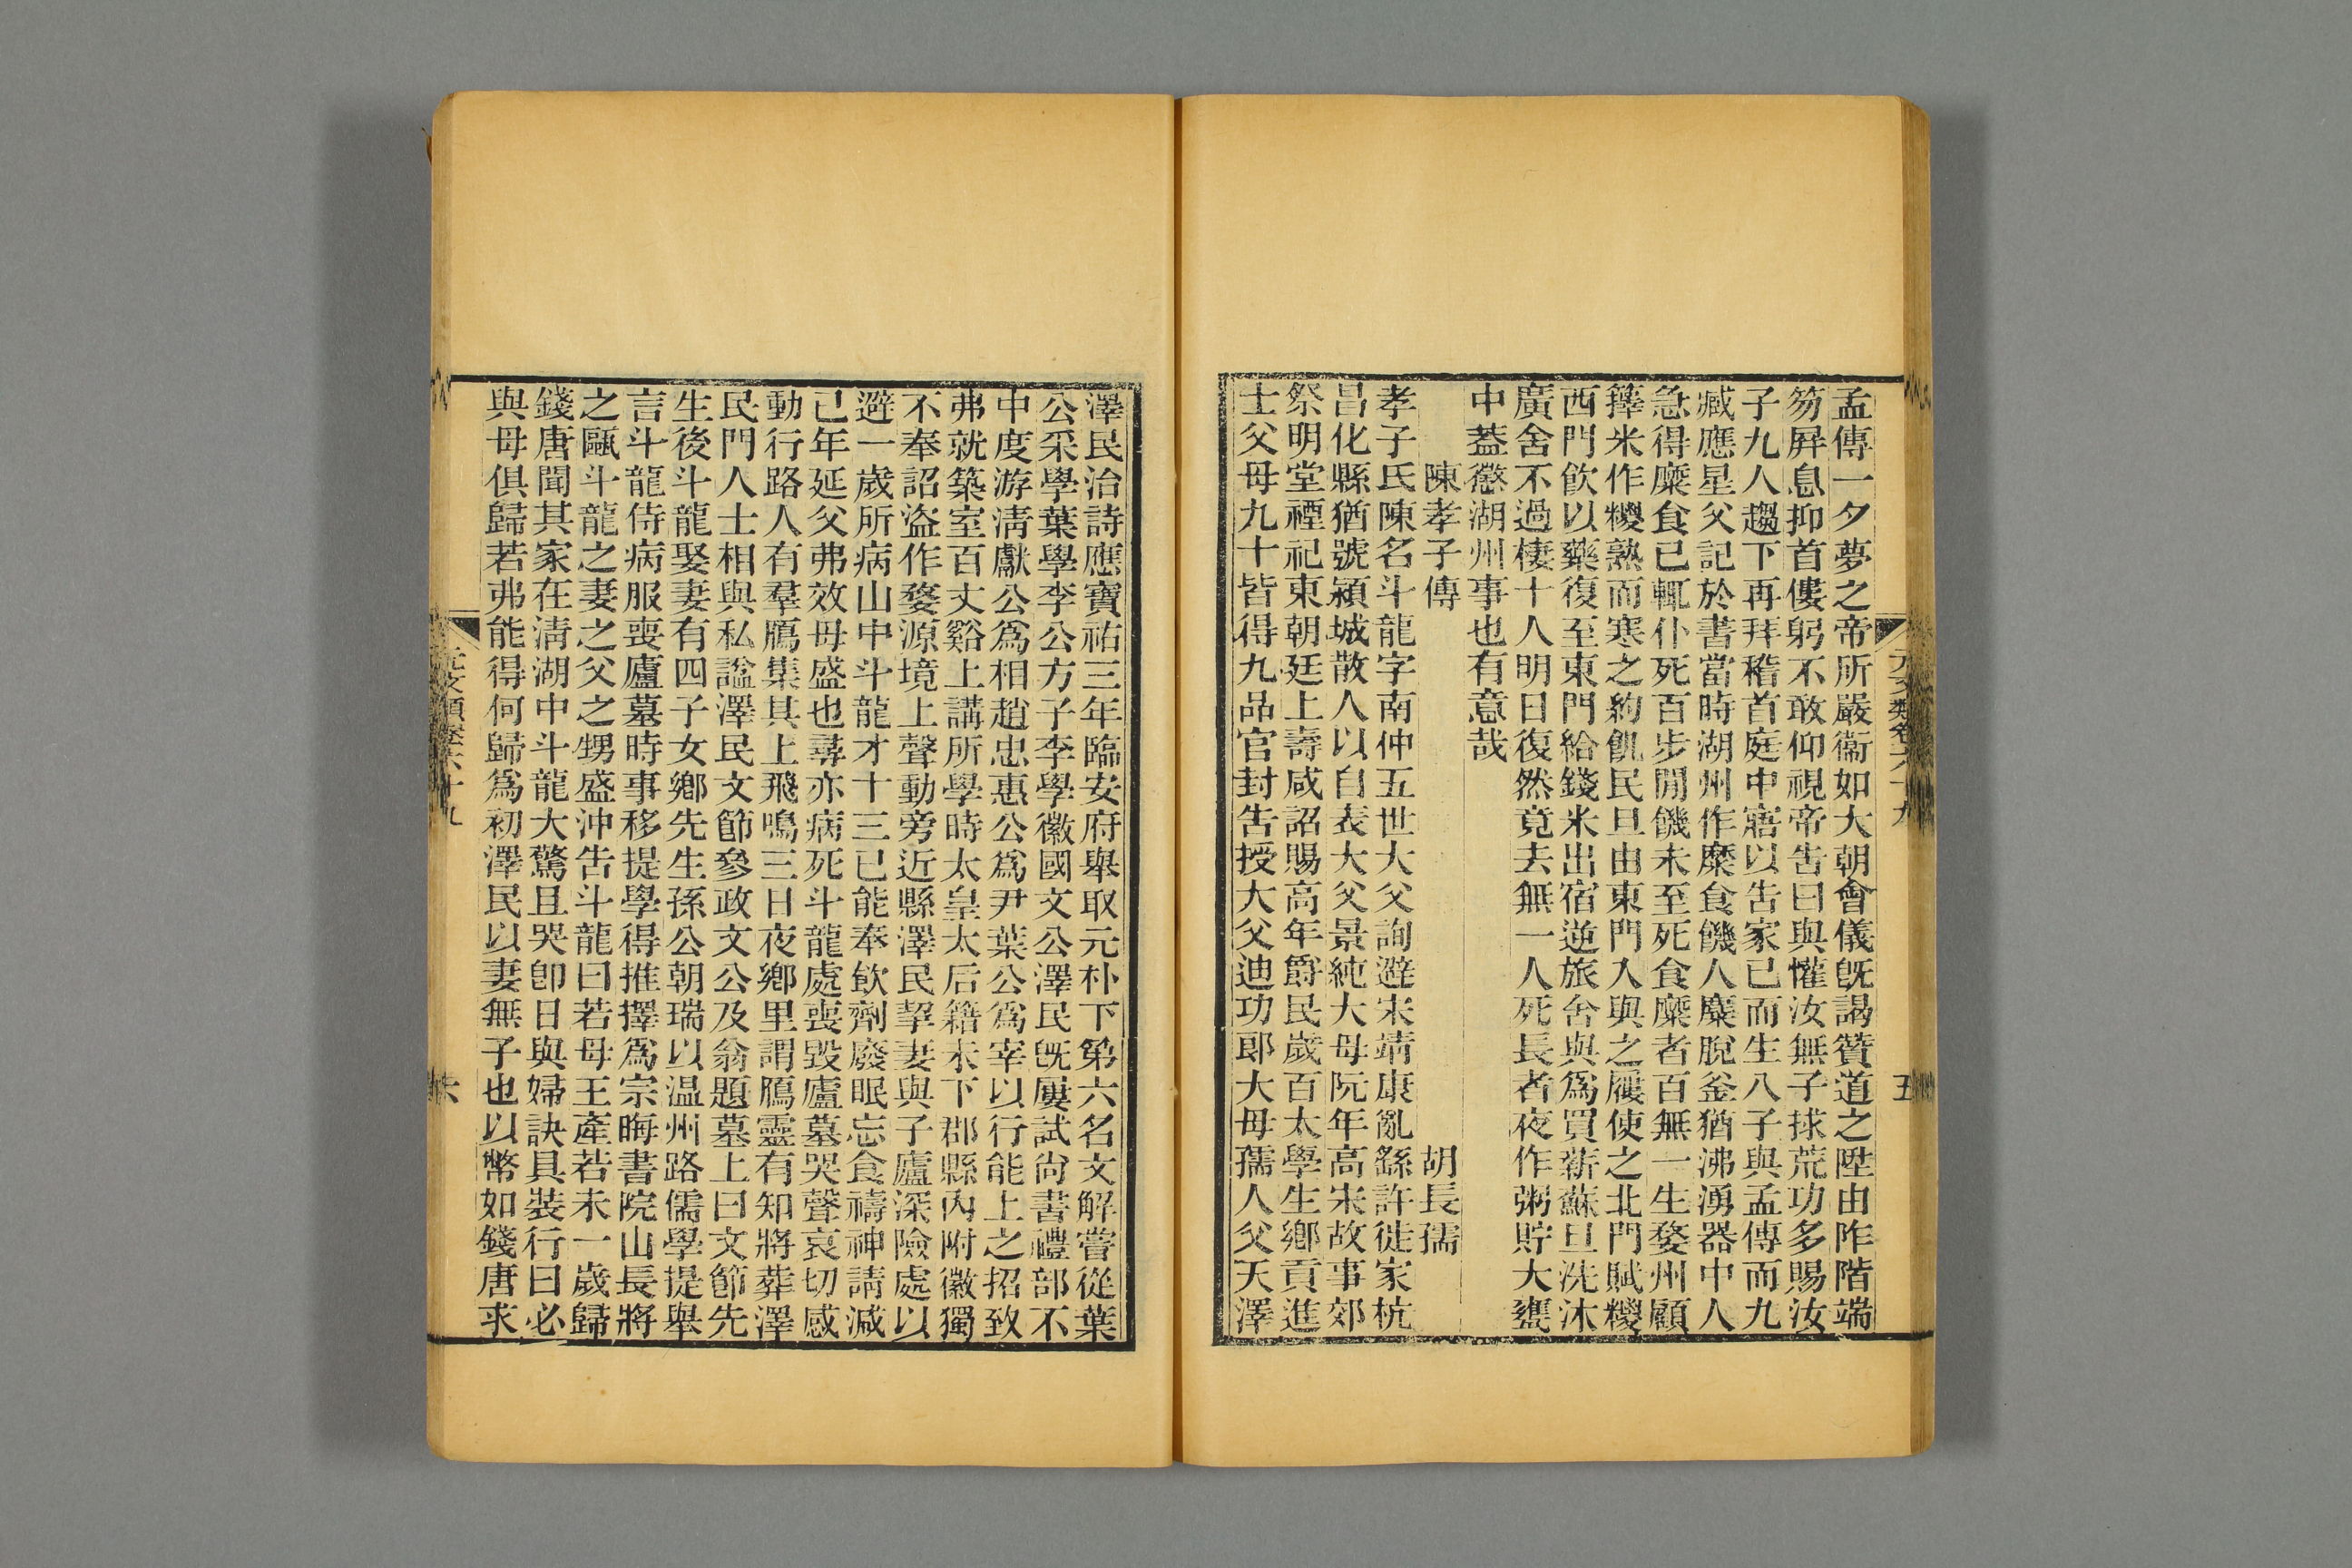 孟傳一夕夢之帝所嚴衞如大朝會儀旣謁贊道之陞由阼階端
笏屛息抑首僂躬不敢仰視帝告曰與懽汝無子捄荒功多賜汝
子九人趨下再拜稽首庭中寤以告家已而生八子與孟傳而九
臧應星父記於書當時湖州作糜食饑人麋脫釜猶沸湧器中人
急得糜食已輒仆死百步閒饑未至死食糜者百無一生婺州顧
擇米作糭熟而寒之約飢民旦由東門入與之屨使之北門賦糭
西門飮以藥復至東門給錢米出宿逆旅舍與爲買薪蘇旦洗沐
廣舍不過棲十人明日復然竟去無一人死長者夜作粥貯大甕
中葢懲湖州事也有意哉
陳孝子傳 胡長孺
孝子氏陳名斗龍字南仲五世大父詢避宋靖康亂繇許徙家杭
昌化縣猶號潁城散人以自表大父景純大母阮年高宋故事郊
祭明堂禋祀東朝廷上壽咸詔賜高年爵民歲百太學生鄕貢進
士父母九十皆得九品官封告授大父迪功郎大母孺人父天澤
元文類卷六十九 五
澤民治詩應寶祐三年臨安府舉取元朴下第六名文解嘗從葉
公采學葉學李公方子李學徽國文公澤民旣屢試尙書禮部不
中度游淸獻公爲相趙忠惠公爲尹葉公爲宰以行能上之招致
弗就築室百丈谿上講所學時太皇太后籍未下郡縣內附徽獨
不奉詔盜作婺源境上聲動旁近縣澤民挈妻與子廬深險處以
避一歲所病山中斗龍才十三已能奉飮劑廢眠忘食禱神請減
已年延父弗效母盛也尋亦病死斗龍處喪毀廬墓哭聲哀切感
動行路人有羣鴈集其上飛鳴三日夜鄕里謂鴈靈有知將葬澤
民門人士相與私諡澤民文節參政文公及翁題墓上曰文節先
生後斗龍娶妻有四子女鄕先生孫公朝瑞以温州路儒學提舉
言斗龍侍病服喪廬墓時事移提學得推擇爲宗晦書院山長將
之甌斗龍之妻之父之甥盛沖告斗龍曰若母王產若未一歲歸
錢唐聞其家在淸湖中斗龍大驚且哭卽日與婦訣具裝行曰必
與母俱歸若弗能得何歸爲初澤民以妻無子也以幣如錢唐求
元文類卷六十九 六